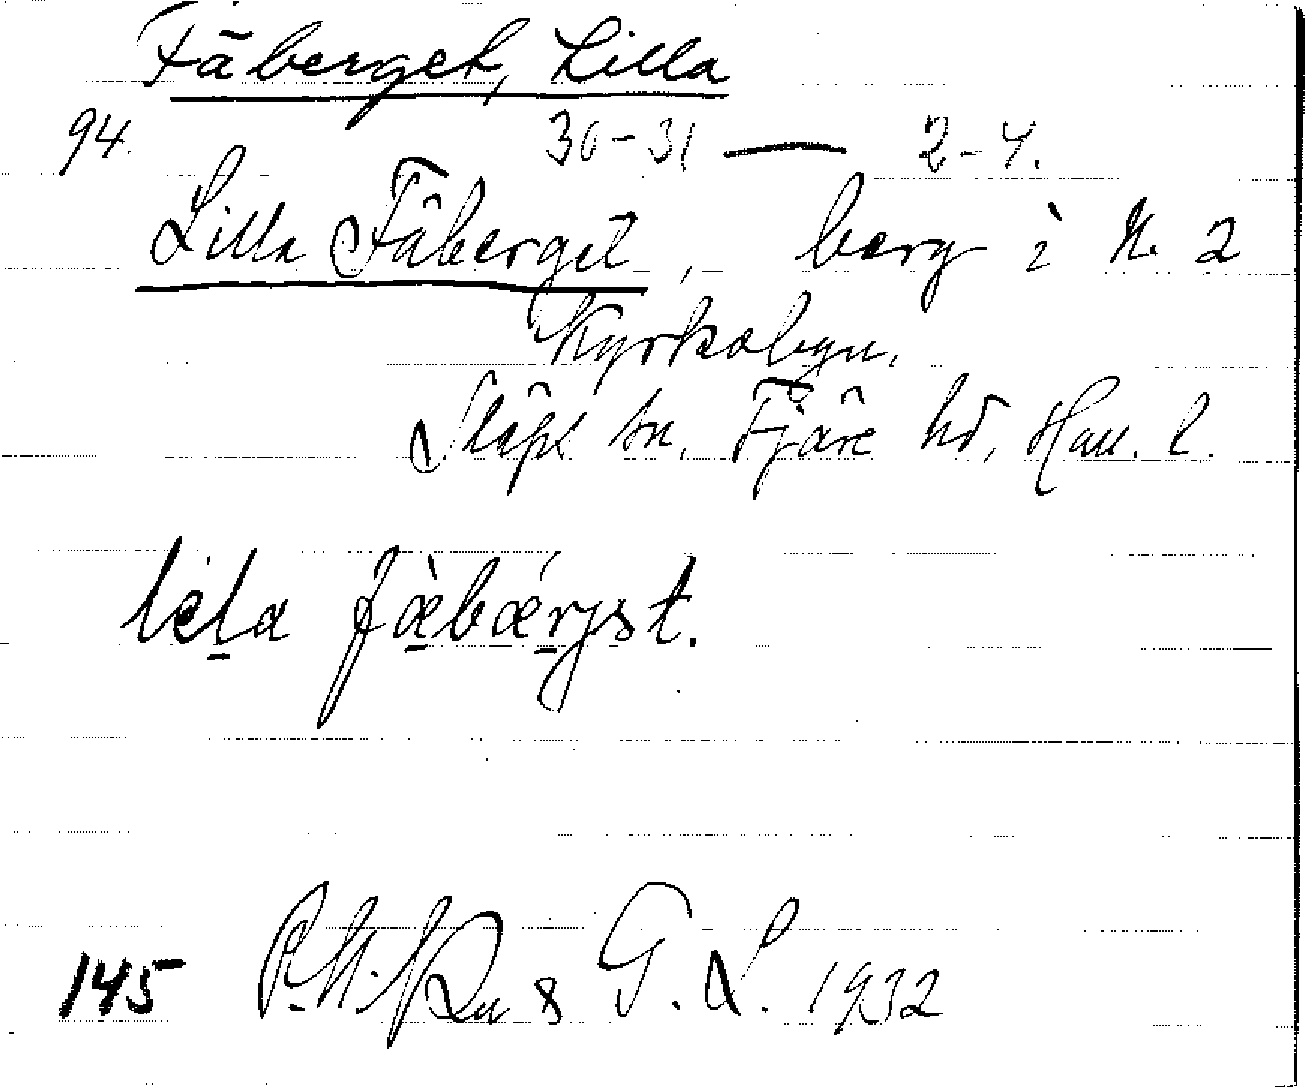 Fäberget, Lilla
94. 30-31 — 2-4.
Lilla Fäberget, berg i N. 2
Kyrkobyn.
Släps sn. Fjäre hd, Hall. l.
lela fæ̀bærjst.
145 & G. L. 1932